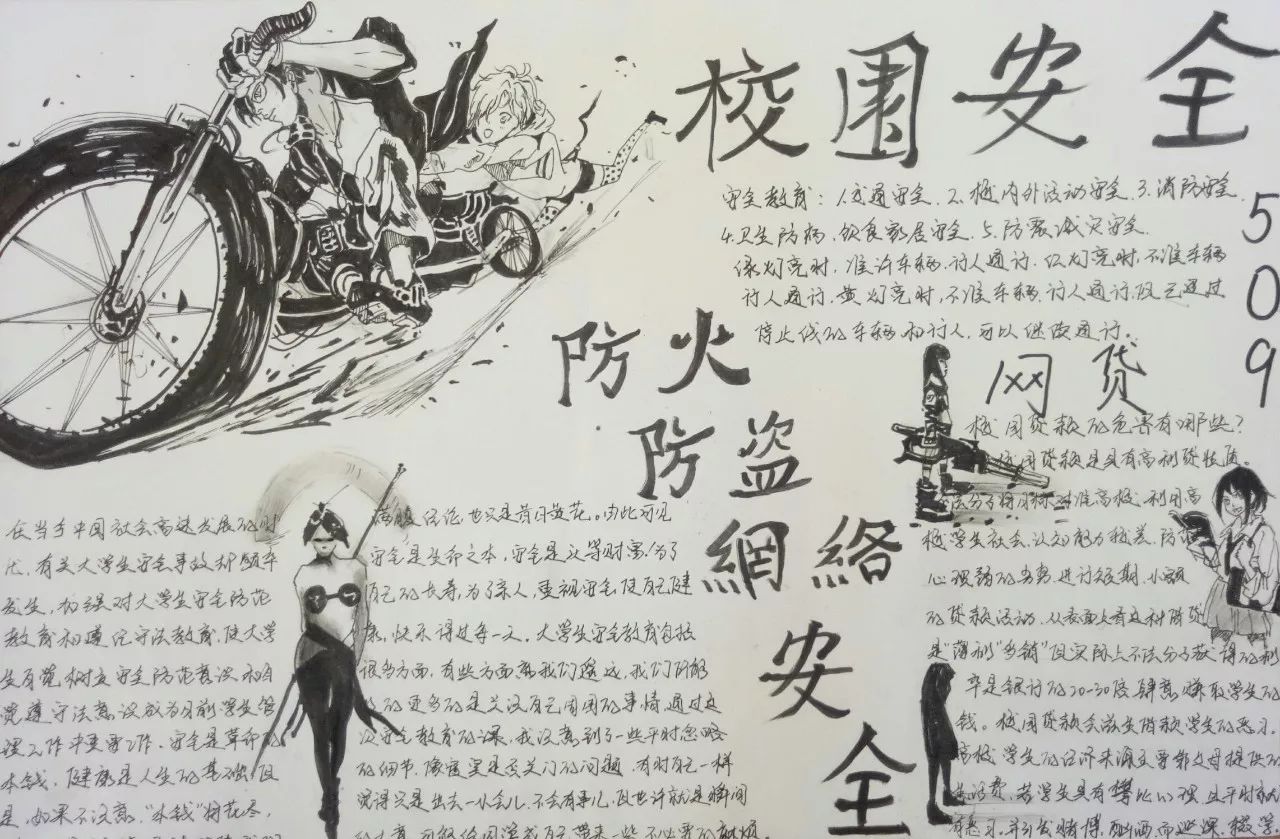 校園安全
509
安全教育：1.交通安全. 2. 校内外活动安全. 3. 消防安全.
4.卫生防病,饮食家居安全. 5. 防震减灾安全.
绿灯亮时,准许车辆.行人通行.红灯亮时,不准车辆
行人通行.黄灯亮时,不准车辆.行人通行,但已越过
停止线的车辆和行人,可以继续通行.
防火
防盗
網絡
安
全
网贷
校园贷款的危害有哪些?
校园贷款是具有高利贷性质。
不法分子将目标对准高校,利用高
校学生社会认知能力较差,防范
心理弱的劣势,进行短期、小额
的贷款活动,从表面上看这种借贷
是"薄利多销"但实际上不法分子获得的利
率是银行的20-30倍肆意赚取学生的
钱。校园贷款会滋生借款学生的恶习.
高校学生的经济来源主要靠父母提供的
生活费,若学生具有攀比心理,且平时就
在当今中国社会高速发展的时
代,有关大学生安全事故频频率
发生,加强对大学生安全防范
教育和遵纪守法教育,使大学
生自觉树立安全防范意识和自
觉遵守法意识成为目前学生管
理工作中重要工作.安全是革命的
本钱,健康是人生的基础但
是,如果不注意,"本钱"would花尽,
安全是生命之本,安全是父母财富,为了
自己的长寿,为了亲人,重视安全,使自己健
康,快乐得过每一天。大学生安全教育包括
很多方面,有些方面离我们遥远,我们所能
的还多的是关注自己周围的事情,通过这
次安全教育的课,我注意到了一些平时忽略
的细节,像寝室是否关门的问题,有时自己一样
觉得只是出去一小会儿,不会有事儿,但也许就是瞬间